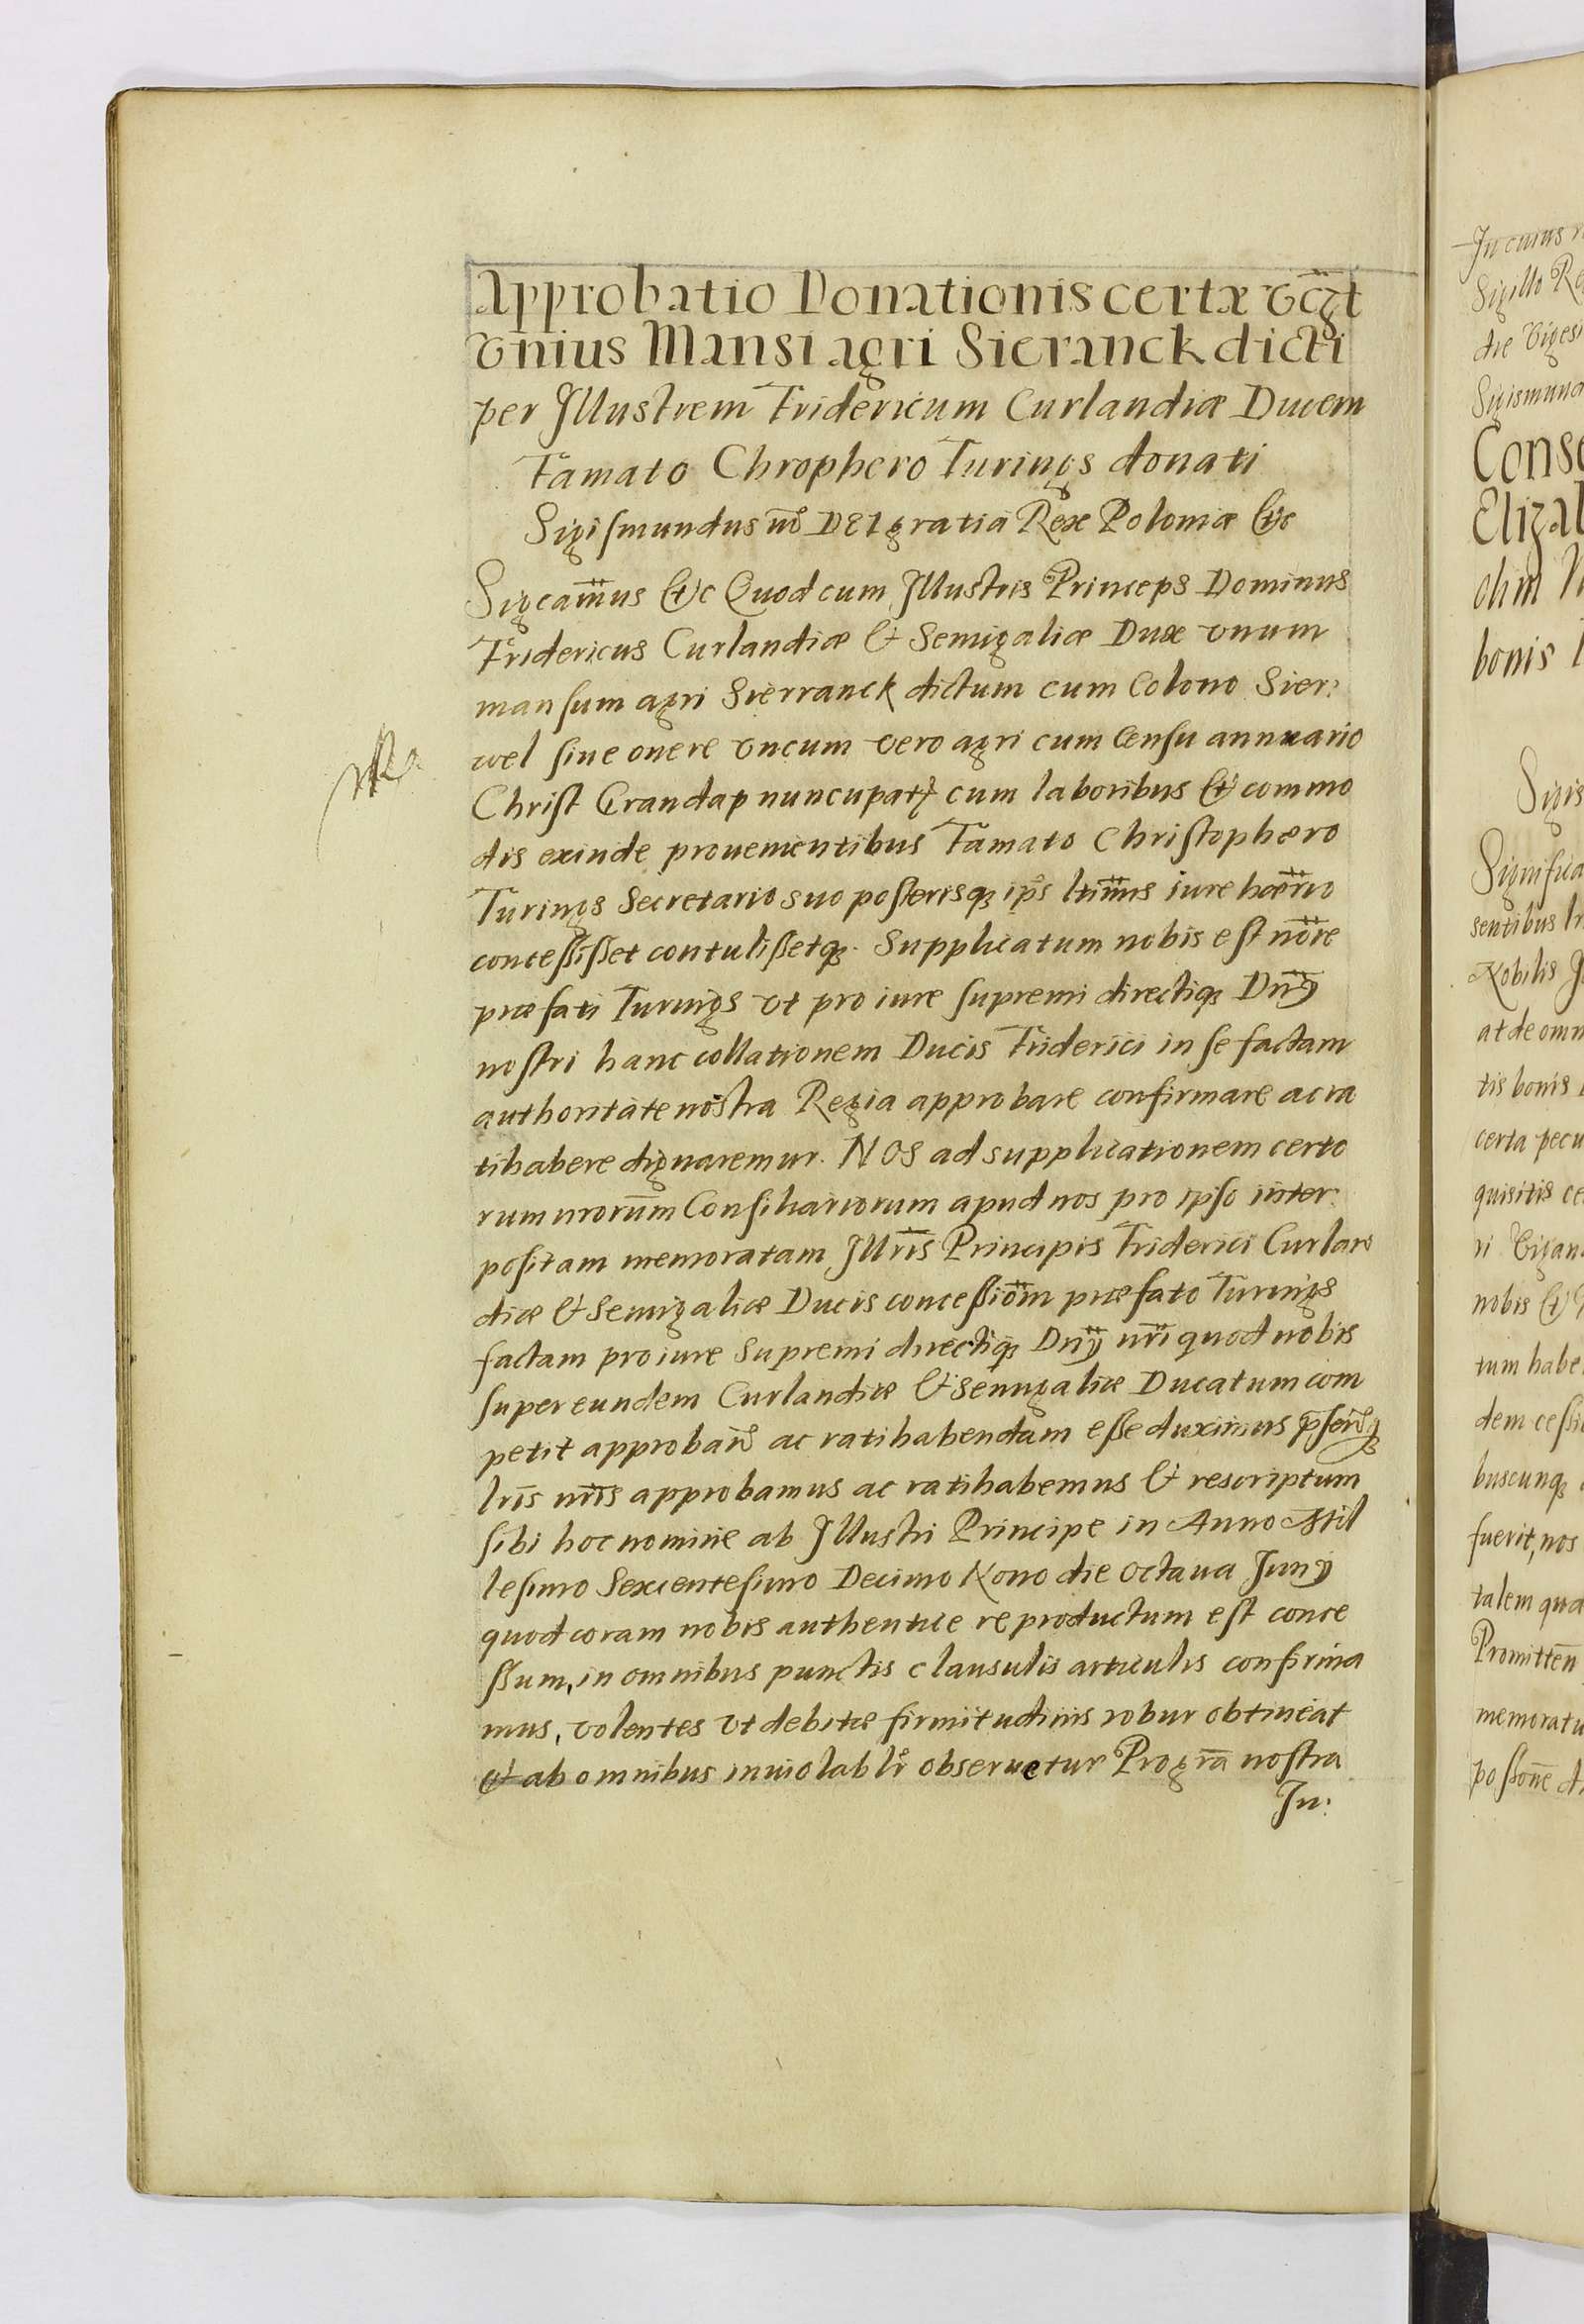 Approbatio Donationis certæ vcʒt
vnius Mansi agri Sieranck dicti
per Illustrem Fridericum Curlandiæ Ducem
Famato Chrophero Turings donati
Sigismundus DEI gratia Rex Poloniæ &c
Sigcam̄us &c Quod cum Illustris Princeps Dominus
Fridericus Curlandiæ & Semigaliæ Dux vnum
mansum agri Sierranck dictum cum Colono Sier:
wel siue onere vncum vero agri cum Censu annuario
Christ Grandap nuncupatꝫ cum laboribus & commo
dis exinde prouenientibus Famato Christophero
Turings Secretario suo posterisqꝫ ip̄s ltīmis iure hær̄io
concessisset contulissetqꝫ. Supplicatum nobis est nōīe
præfati Turings vt pro iure supremi directiqꝫ Dn̄ÿ
nostri hanc collationem Ducis Friderici in se factam
authoritate nostra Regia approbare confirmare ac ra
tihabere dignaremur. NOS ad supplicationem certo
rum nrorum̄ Consiliariorum apud nos pro ipso inter:
positam memoratam Illrīs Principis Friderici Curlan
diæ & Semigaliæ Ducis concessiōm præfato Turings
factam pro iure Supremi directiqꝫ Dn̄ÿ nr̄i quod nobis
super eundem Curlandiæ & Semigaliæ Ducatum com
petit approban̄ ac ratihabendam esse duximus p̄sen̄qꝫ
lrīs nrīs approbamus ac ratihabemus & rescriptum
sibi hoc nomine ab Illustri Principe in Anno Mil
lesimo Sexcentesimo Decimo Nono die Octaua Junÿ
quod coram nobis authentice reproductum est conce
ssum, in omnibus punctis clausulis articulis confirma
mus, volentes vt debitæ firmitudinis robur obtineat
et ab omnibus inuiolablr obseruetur Progrā nostra
In:
In cuius
Sigillo Re
die Viges
Sigismund
Conse
Elizab
olim
bonis
Sigis
Significa
sentibus lr
Nobilis J
at de omn
tis bonis
certa pecu
quisitis ce
ri Vigan
nobis &
tum habe
dem cessi
buscunqꝫ
fuerit, nos
talem qua
Promitten̄
memoratu
possone d